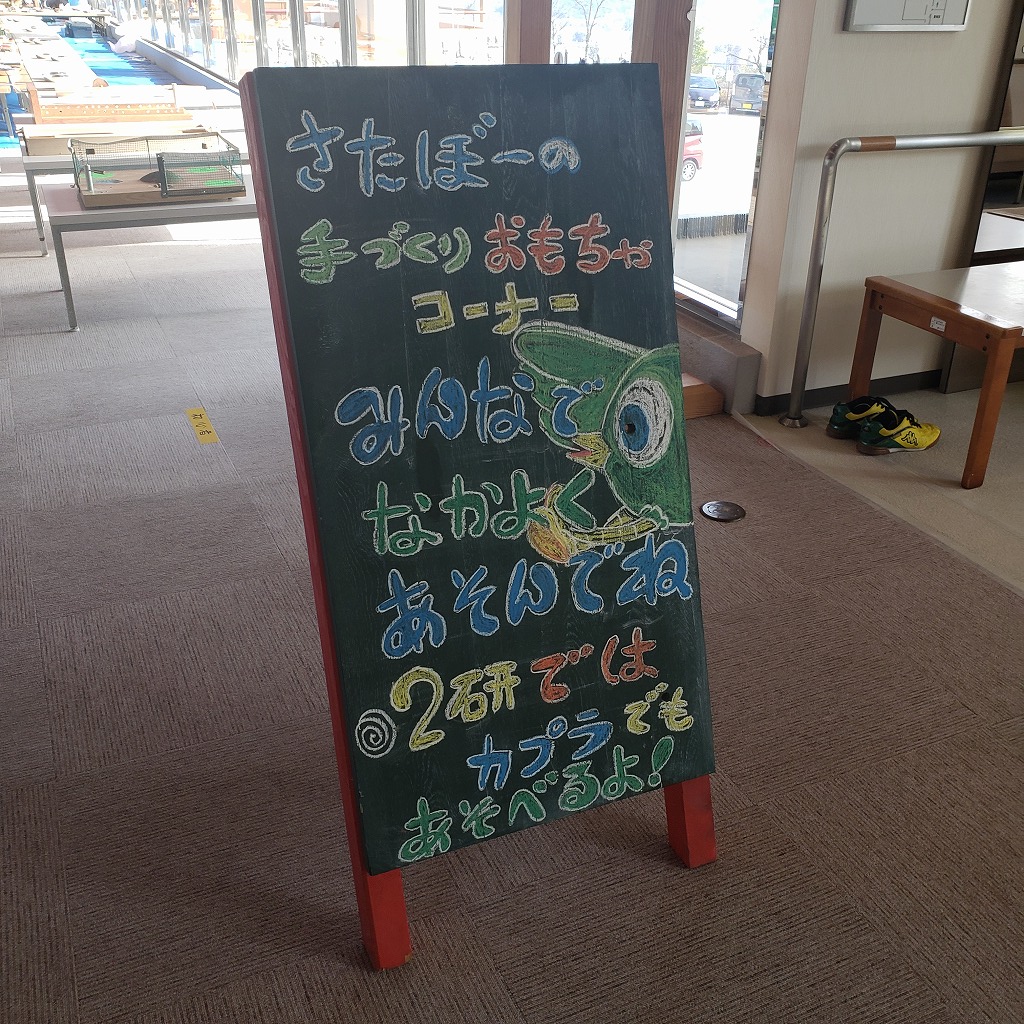 さたぼーの
手づくり おもちゃ
コーナー
みんなで
なかよく
あそんでね
2研では
カプラでも
あそべるよ!